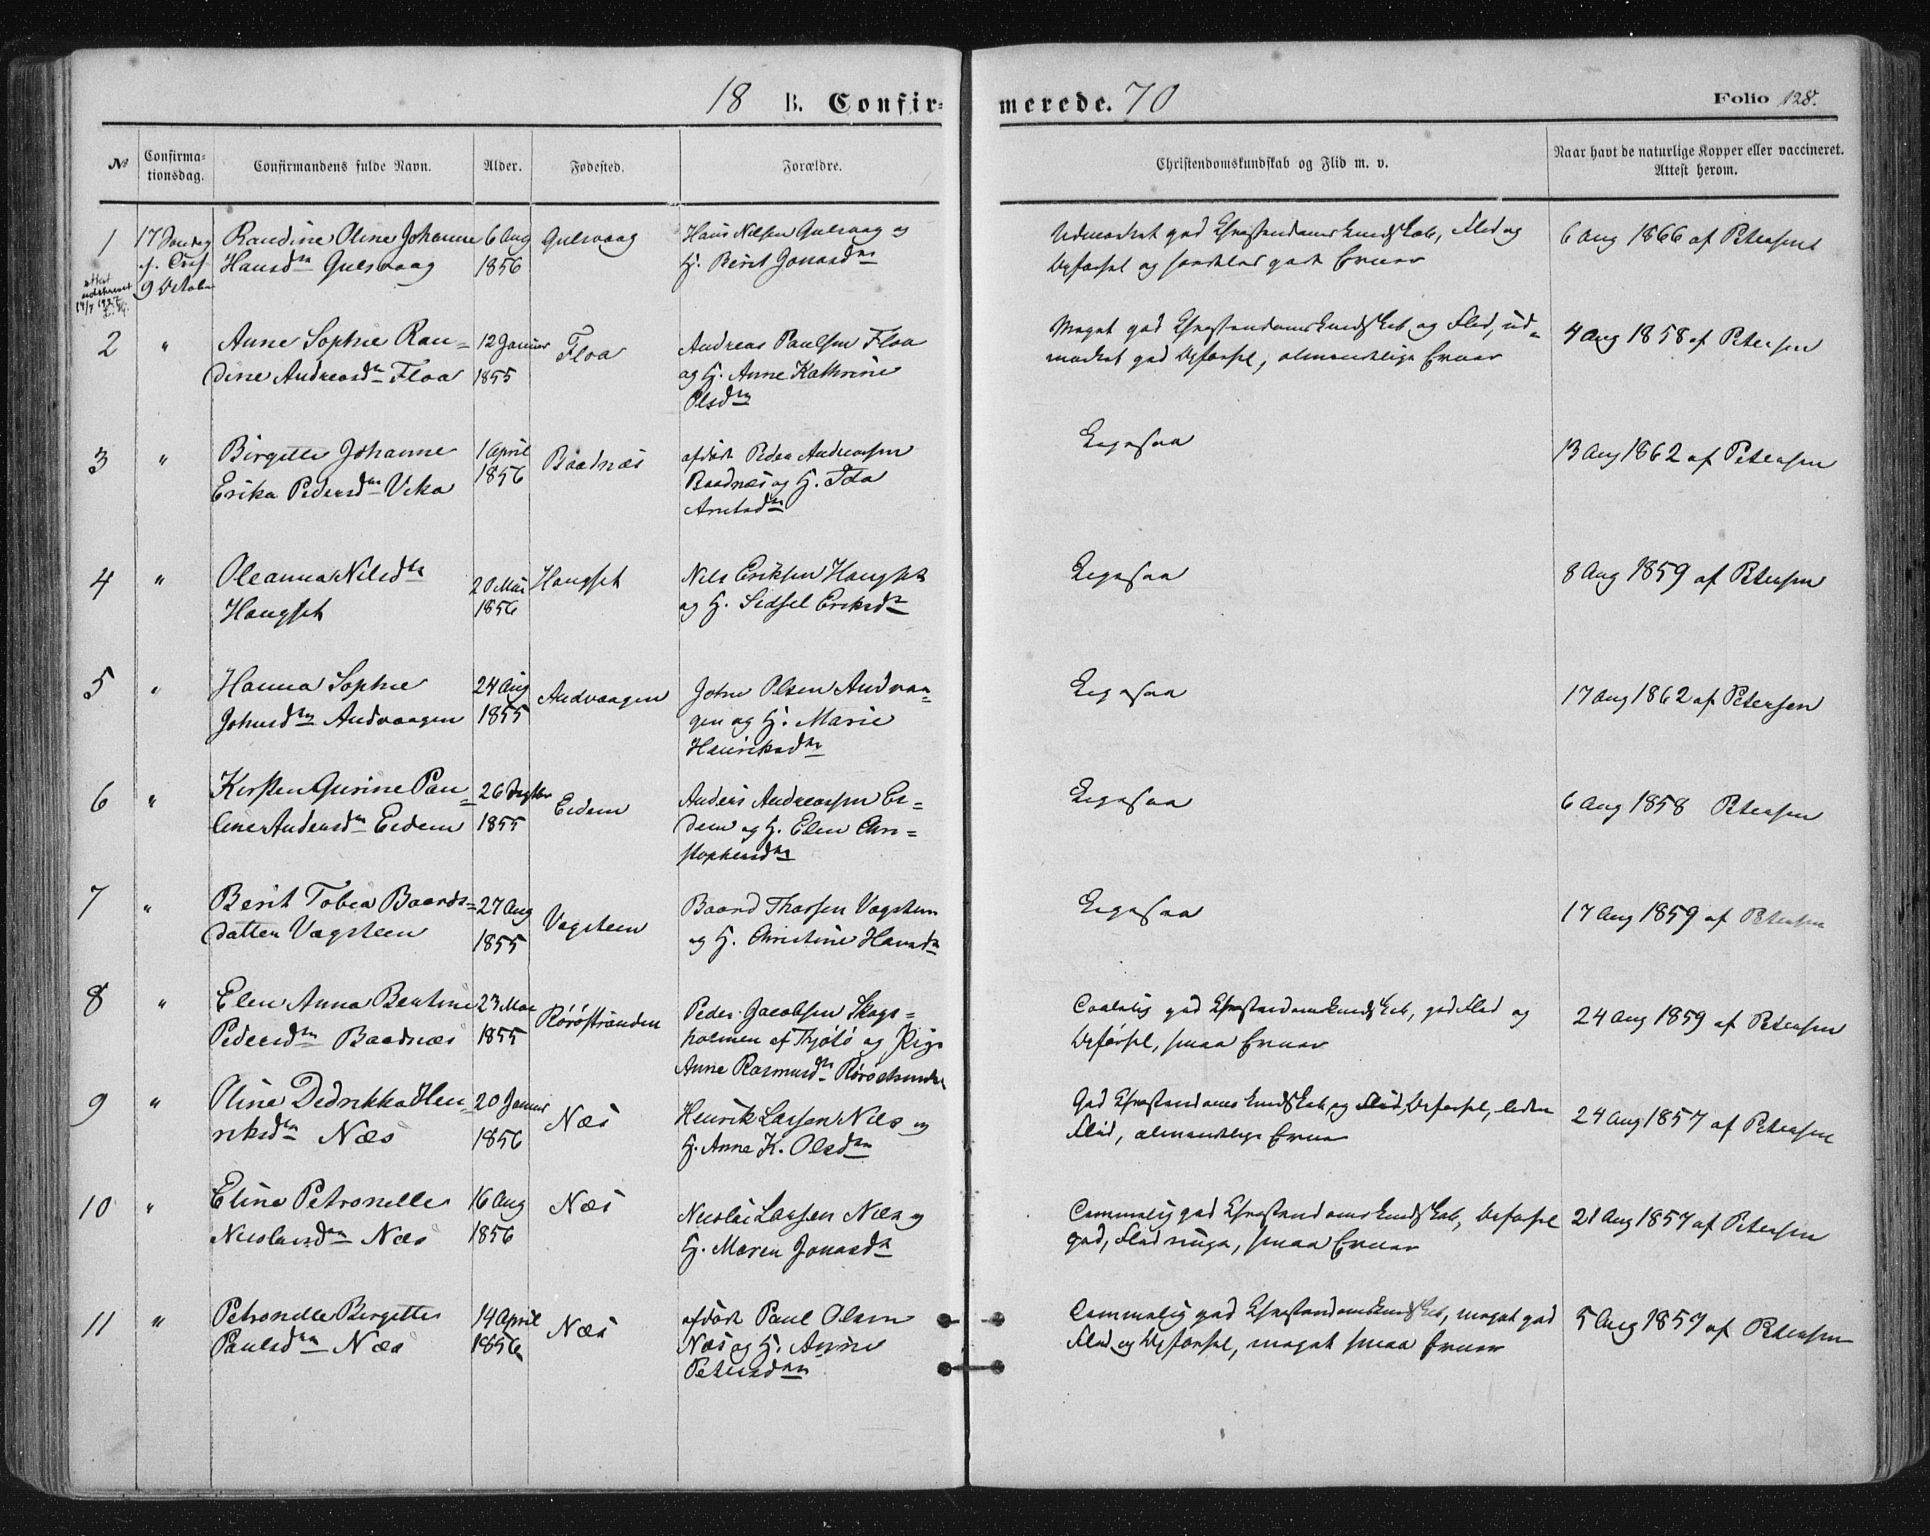 18 B. Confirmerede. 70
Folio 128.
No Confirmationsdag. Confirmandens fulde Navn. Alder. Fødested. Forældre. Christendomskundskab og Flid m. v. Naar havt de naturlige Kopper eller vaccineret. Attest herom.
1 17 Søndag Randine Oline Johanne 6 Aug Gulsvaag Hans Nilsen Gulsvaag og Udmærket god Christendomskundskab, Flid og 6 Aug 1866 af Petersen
Hansdtr Gulsvaag 1856 H. Berit Jonasdtr Opførsel og særdeles gode Evner
9 October
attest
udskrevet
14/7 1927
2 " Anne Sophie Ran= 12 Januar Floa Andreas Paulsen Floa Meget god Christendomskundskab og Flid, ud= 4 Aug 1858 af Petersen
dine Andreasdtr Floa 1855 og H. Anne Kathrine mærket god Opførsel, almindelige Evner
Olsdtr
3 " Birgitte Johanne 1 April Baadnæs afdøde Peder Andreassen Ligesaa 13 Aug 1862 af Petersen
Erika Pedersdtr Vika 1856 Baadnæs og H. Ida
4 " Oleanna Nilsdtr 20 Mai Haugset Nils Eriksen Haugset Ligesaa 8 Aug 1859 af Petersen
Haugset 1856 og H. Sidsel Eriksdtr
5 " Hanna Sophie 24 Aug Andvaagen John Olsen Andvaa= Ligesaa 17 Aug 1862 af Petersen
Johnsdtr Andvaagen 1855 gen og H. Marie
Henriksdtr
6 " Kirsten Gurine Pau= 26 Septbr Eidem Anders Andreassen Ei= Ligesaa 6 Aug 1858 Petersen
line Andersdtr Eidem 1855 dem og H. Elen Chri=
stophersdtr
7 " Berit Tobia Baards= 27 Aug Vagsteen Baard Thorsen Vagsteen Ligesaa 17 Aug 1859 af Petersen
datter Vagsteen 1855 og H. Christine Hansdtr
8 " Elen Anna Bentine 23 Mai Rørøstranden Peder Jacobsen Skogs= god Christendomskundskab, god Flid og 24 Aug 1859 af Petersen
Pedersdtr Baadnæs 1855 holmen af Thjøtø og Pige Opførsel, smaa Evner
Anne Rasmusdtr Rørøstranden
9 " Oline Dedrikka Hen= 20 Januar Næs Henrik Larsen Næs og God Christendomskundskab og Flid, Opførsel, liden 24 Aug 1857 af Petersen
riksdtr Næs 1856 H. Anne K. Olsdtr Flid, almindelige Evner
10 " Eline Petronelle 16 Aug Næs Nicolai Larsen Næs og Temmelig god Christendomskundskab, Opførsel 21 Aug 1857 af Petersen
Nicolaisdtr Næs 1856 H. Maren Jonasdtr god, Flid ringe, smaa Evner
11 " Petronelle Birgitte 14 April Næs afdøde Paul Olsen Temmelig god Christendomskundskab, meget god 5 Aug 1857 af Petersen
Paulsdtr Næs 1856 Næs og H. Anne Flid og Opførsel, meget smaa Evner
Petersdtr